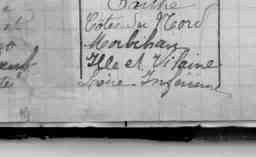 Sarthe
Côtes du Nord
Morbihan
Ille et Vilaine
Loire Inférieure